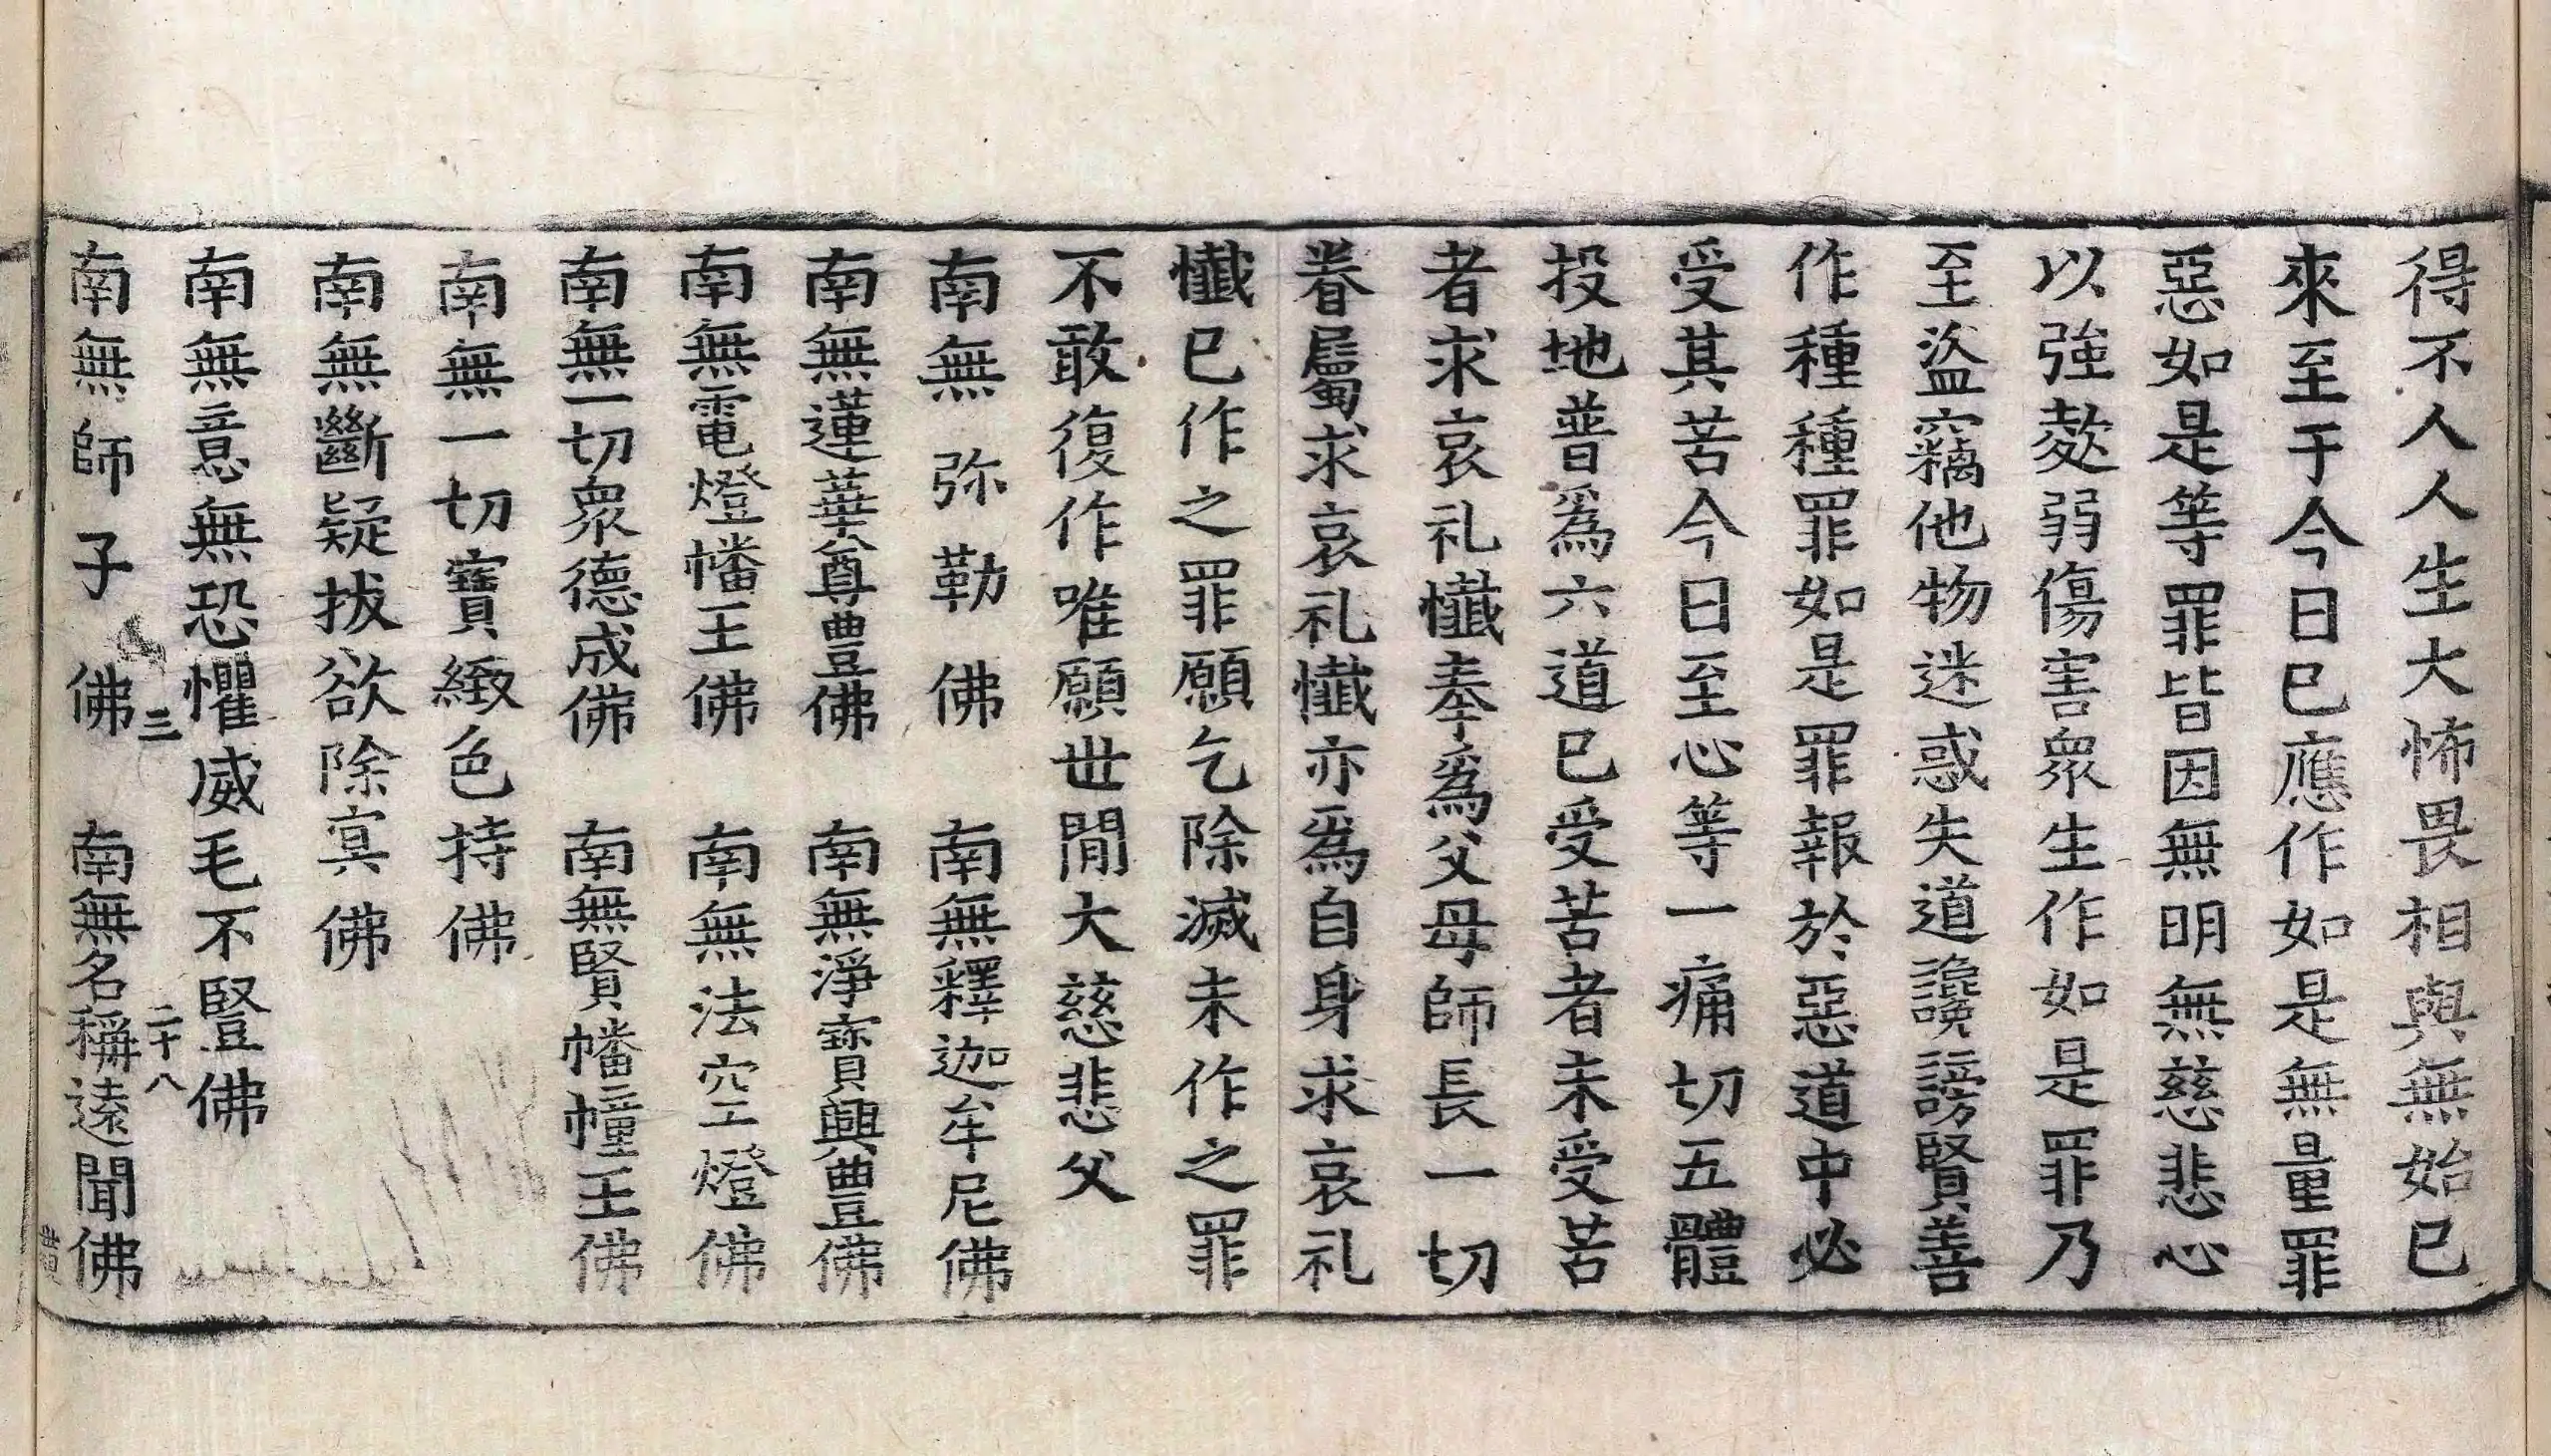 得不人人生大怖畏相與無始已
來至于今日已應作如是無量罪
惡如是等罪皆因無明無慈悲心
以強𣣋弱傷害衆生作如是罪乃
至盜竊他物迷惑失道讒謗賢善
作種種罪如是罪報於惡道中必
受其苦今日至心等一痛切五體
投地普爲六道已受苦者未受苦
者求哀礼懺奉爲父母師長一切
眷屬求哀礼懺亦爲自身求哀礼
懺已作之罪願乞除滅未作之罪
不敢復作唯願世閒大慈悲父
南無弥勒佛　南無釋迦牟尼佛
南無蓮華尊豊佛　南無淨寶興豊佛
南無電燈幡王佛　南無法空燈佛
南無一切衆德成佛　南無賢幡幢王佛
南無一切寶緻色持佛
南無斷疑拔欲除㝠佛
南無意無恐懼威毛不豎佛
三　二十八
南無師子佛　南無名稱遠聞佛